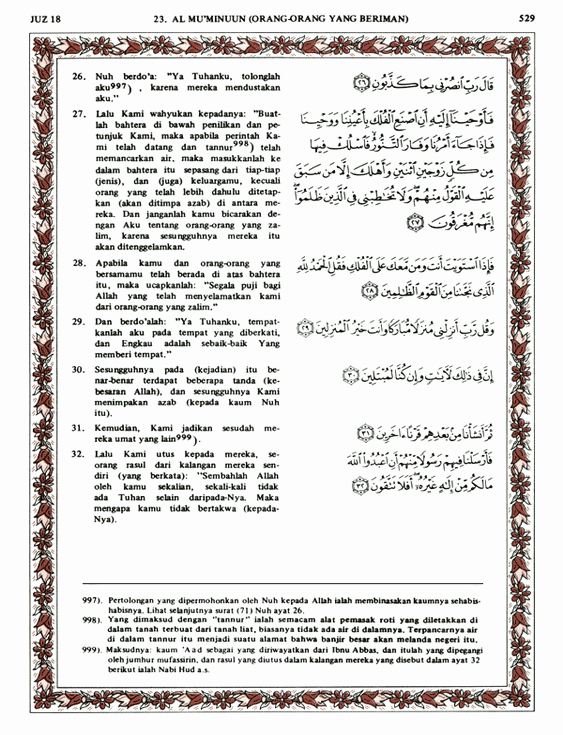 JUZ 18
23. AL MU'MINUUN (ORANG-ORANG YANG BERIMAN)
529
26. Nuh berdo'a: "Ya Tuhanku, tolonglah
aku997) , karena mereka mendustakan
aku."
قَالَ رَبِّ ٱنصُرْنِى بِمَا كَذَّبُونِ ﴿٢٦﴾
27. Lalu Kami wahyukan kepadanya: "Buat-
lah bahtera di bawah penilikan dan pe-
tunjuk Kami, maka apabila perintah Ka-
mi telah datang dan tannur998) telah
memancarkan air, maka masukkanlah ke
dalam bahtera itu sepasang dari tiap-tiap
(jenis), dan (juga) keluargamu, kecuali
orang yang telah lebih dahulu ditetap-
kan (akan ditimpa azab) di antara me-
reka. Dan janganlah kamu bicarakan de-
ngan Aku tentang orang-orang yang za-
lim, karena sesungguhnya mereka itu
akan ditenggelamkan.
فَأَوْحَيْنَآ إِلَيْهِ أَنِ ٱصْنَعِ ٱلْفُلْكَ بِأَعْيُنِنَا وَوَحْيِنَا
فَإِذَا جَآءَ أَمْرُنَا وَفَارَ ٱلتَّنُّورُ فَٱسْلُكْ فِيهَا
مِن كُلٍّ زَوْجَيْنِ ٱثْنَيْنِ وَأَهْلَكَ إِلَّا مَن سَبَقَ
عَلَيْهِ ٱلْقَوْلُ مِنْهُمْ وَلَا تُخَٰطِبْنِى فِى ٱلَّذِينَ ظَلَمُوٓا۟
إِنَّهُم مُّغْرَقُونَ ﴿٢٧﴾
28. Apabila kamu dan orang-orang yang
bersamamu telah berada di atas bahtera
itu, maka ucapkanlah: "Segala puji bagi
Allah yang telah menyelamatkan kami
dari orang-orang yang zalim."
فَإِذَا ٱسْتَوَيْتَ أَنتَ وَمَن مَّعَكَ عَلَى ٱلْفُلْكِ فَقُلِ ٱلْحَمْدُ لِلَّهِ
ٱلَّذِى نَجَّىٰنَا مِنَ ٱلْقَوْمِ ٱلظَّٰلِمِينَ ﴿٢٨﴾
29. Dan berdo'alah: "Ya Tuhanku, tempat-
kanlah aku pada tempat yang diberkati,
dan Engkau adalah sebaik-baik Yang
memberi tempat."
وَقُل رَّبِّ أَنزِلْنِى مُنزَلًا مُّبَارَكًا وَأَنتَ خَيْرُ ٱلْمُنزِلِينَ ﴿٢٩﴾
30. Sesungguhnya pada (kejadian) itu be-
nar-benar terdapat beberapa tanda (ke-
besaran Allah), dan sesungguhnya Kami
menimpakan azab (kepada kaum Nuh
itu).
إِنَّ فِى ذَٰلِكَ لَءَايَٰتٍ وَإِن كُنَّا لَمُبْتَلِينَ ﴿٣٠﴾
31. Kemudian, Kami jadikan sesudah me-
reka umat yang lain999).
ثُمَّ أَنشَأْنَا مِنۢ بَعْدِهِمْ قَرْنًا ءَاخَرِينَ ﴿٣١﴾
32. Lalu Kami utus kepada mereka, se-
orang rasul dari kalangan mereka sen-
diri (yang berkata): "Sembahlah Allah
oleh kamu sekalian, sekali-kali tidak
ada Tuhan selain daripada-Nya. Maka
mengapa kamu tidak bertakwa (kepada-
Nya).
فَأَرْسَلْنَا فِيهِمْ رَسُولًا مِّنْهُمْ أَنِ ٱعْبُدُوا۟ ٱللَّهَ
مَا لَكُم مِّنْ إِلَٰهٍ غَيْرُهُۥٓ أَفَلَا تَتَّقُونَ ﴿٣٢﴾
997). Pertolongan yang dipermohonkan oleh Nuh kepada Allah ialah membinasakan kaumnya sehabis-
habisnya. Lihat selanjutnya surat (71) Nuh ayat 26.
998). Yang dimaksud dengan "tannur" ialah semacam alat pemasak roti yang diletakkan di
dalam tanah terbuat dari tanah liat, biasanya tidak ada air di dalamnya. Terpancarnya air
di dalam tannur itu menjadi suatu alamat bahwa banjir besar akan melanda negeri itu.
999). Maksudnya: kaum 'Aad sebagai yang diriwayatkan dari Ibnu Abbas, dan itulah yang dipegangi
oleh jumhur mufassirin, dan rasul yang diutus dalam kalangan mereka yang disebut dalam ayat 32
berikut ialah Nabi Hud a.s.